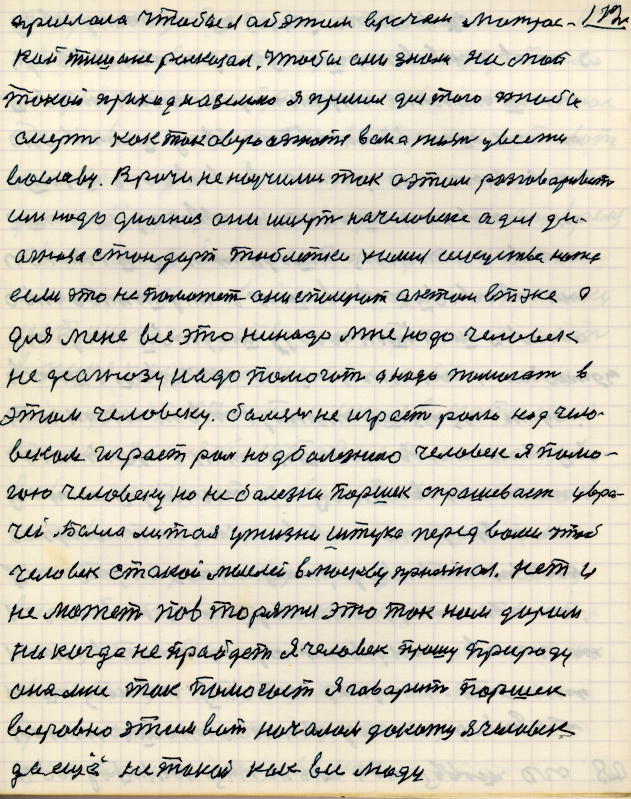 прислала чтобы я об этим врачам Матрос- 172
кой тишане росказал. чтобы они знали на мой
такой приход на землю я пришел для того чтобы
смерть как таковую изжить а жизнь увести
во славу. Врачи не научились так о этим розговаривать
им надо диагноз они ищут на человеке а для ди-
агноза стондарт таблетки химия искуства ножа
если это не поможет они спишут актом в
для мене все это нинадо мне надо человек
не диагнозу надо помогать а надо помогать в
этом человеку. балезнь не играет роль над чело-
веком играет роль над балезнию человек я помо-
гаю человеку но не балезни Паршек спрашивает у вра-
чей. Была ли такая у жизни штука перед вами чтоб
человек с такой мыслей в Москву приехал. нет и
не может повторяти это так нам даром
никогда не прайдеть я человек прошу природу
она мне так помогает я говарить Паршек
всеровно этим вот началом докажу я человек
да ещё не такой как все люди